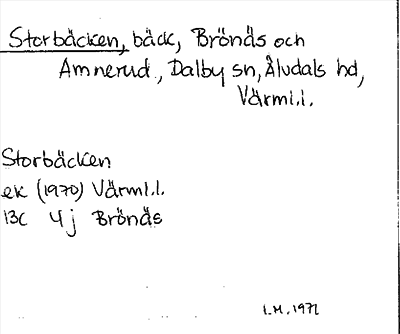 Storbäcken, bäck, Brönäs och
Amnerud, Dalby sn, Älvdals hd,
Värml.l.
Storbäcken
ek (1970) Värml.l.
13C 4j Brönäs
I.M. 1971